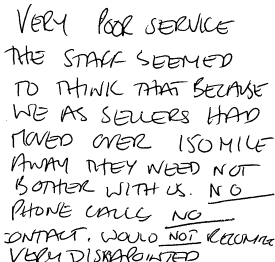 VERY POOR SERVICE
THE STAFF SEEMED
TO THINK THAT BECAUSE
WE AS SELLERS HAD
MOVED OVER 150 MILE
AWAY THEY NEED NOT
BOTHER WITH US. NO
PHONE CALLS NO
CONTACT. WOULD NOT RECOMME
VERY DISAPPOINTED